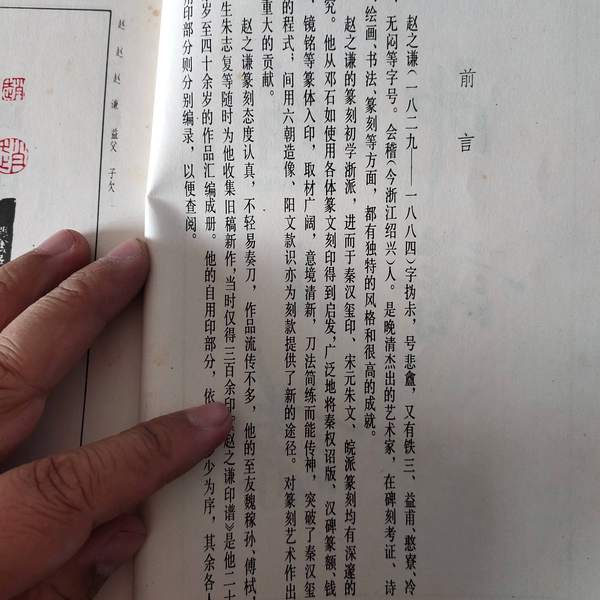 前言
赵之谦(一八二九——一八八四)字㧑尗，号悲盦，又有铁三、益甫、憨寮、冷
、无闷等字号。会稽(今浙江绍兴)人。是晚清杰出的艺术家，在碑刻考证、诗
、绘画、书法、篆刻等方面，都有独特的风格和很高的成就。
赵之谦的篆刻初学浙派，进而于秦汉玺印、宋元朱文、皖派篆刻均有深邃的
究。他从邓石如使用各体篆文刻印得到启发，广泛地将秦权诏版、汉碑篆额、钱
、镜铭等篆体入印，取材广阔，意境清新，刀法简练而能传神，突破了秦汉玺
的程式，间用六朝造像、阳文款识亦为刻款提供了新的途径。对篆刻艺术作出
重大的贡献。
赵之谦篆刻态度认真，不轻易奏刀，作品流传不多，他的至友魏稼孙、傅栻，
生朱志复等随时为他收集旧稿新作，当时仅得三百余印。《赵之谦印谱》是他二十
岁至四十余岁的作品汇编成册。他的自用印部分，依 少为序，其余各人
用印部分则分别编录，以便查阅。
赵
赵
赵谦
益父
子欠